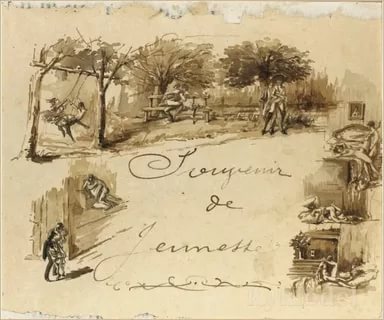 Souvenir
de
Jeunesse